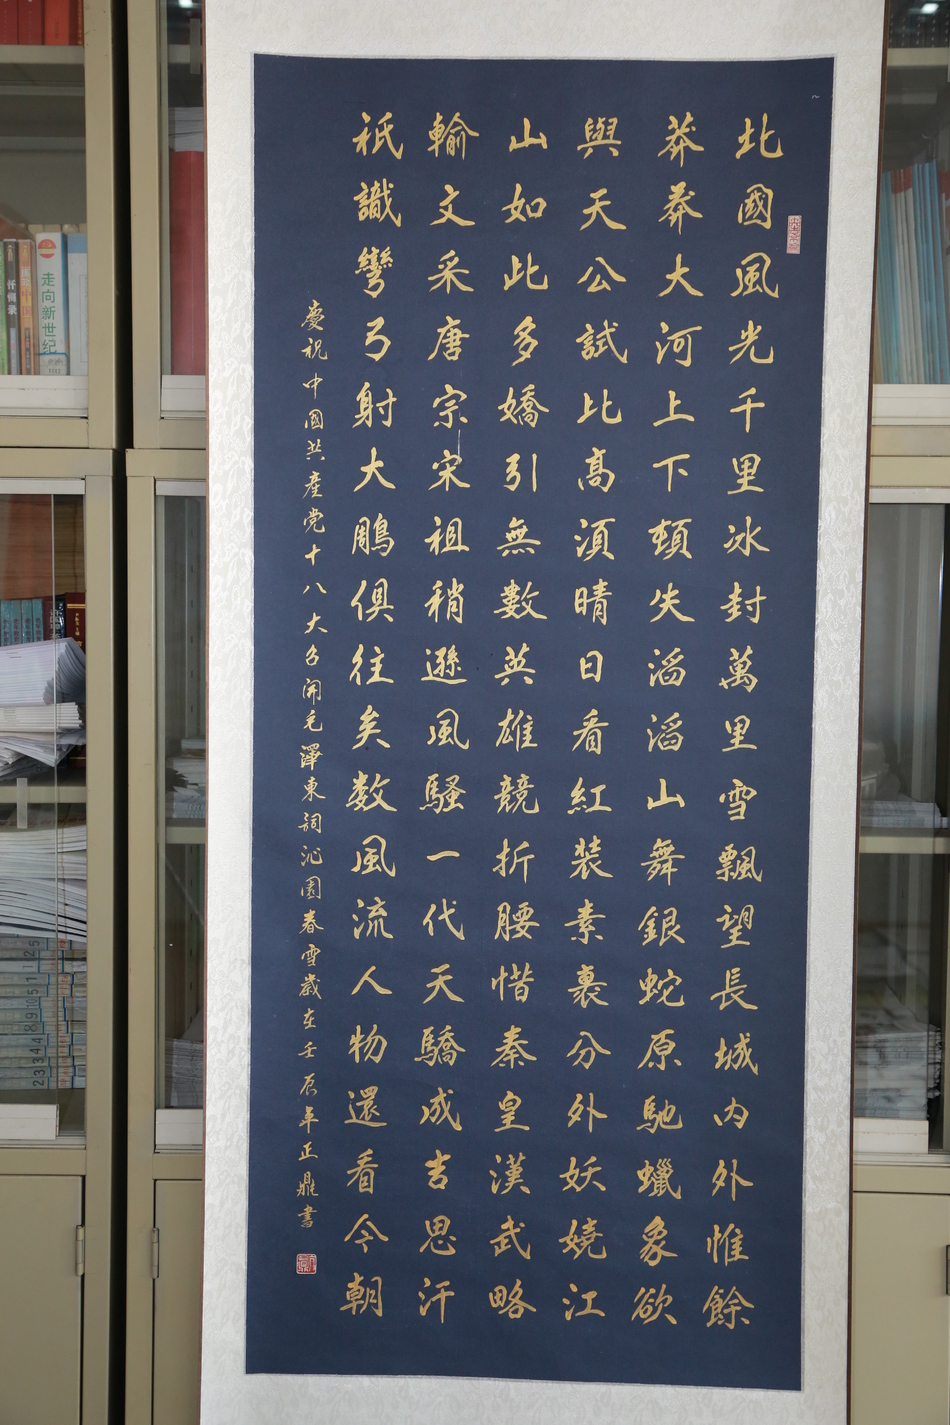 北國風光千里冰封萬里雪飄望長城内外惟餘
莽莽大河上下頓失滔滔山舞銀蛇原馳蠟象欲
與天公試比高湏晴日看紅裝素裹分外妖嬈江
山如此多嬌引無數英雄競折腰惜秦皇漢武略
輸文采唐宗宋祖稍遜風騷一代天驕成吉思汗
祇識彎弓射大鵰俱往矣数風流人物還看今朝
慶祝中國共產党十八大召開毛澤東詞沁園春雪歲在壬辰年正鼎書
走向新世纪